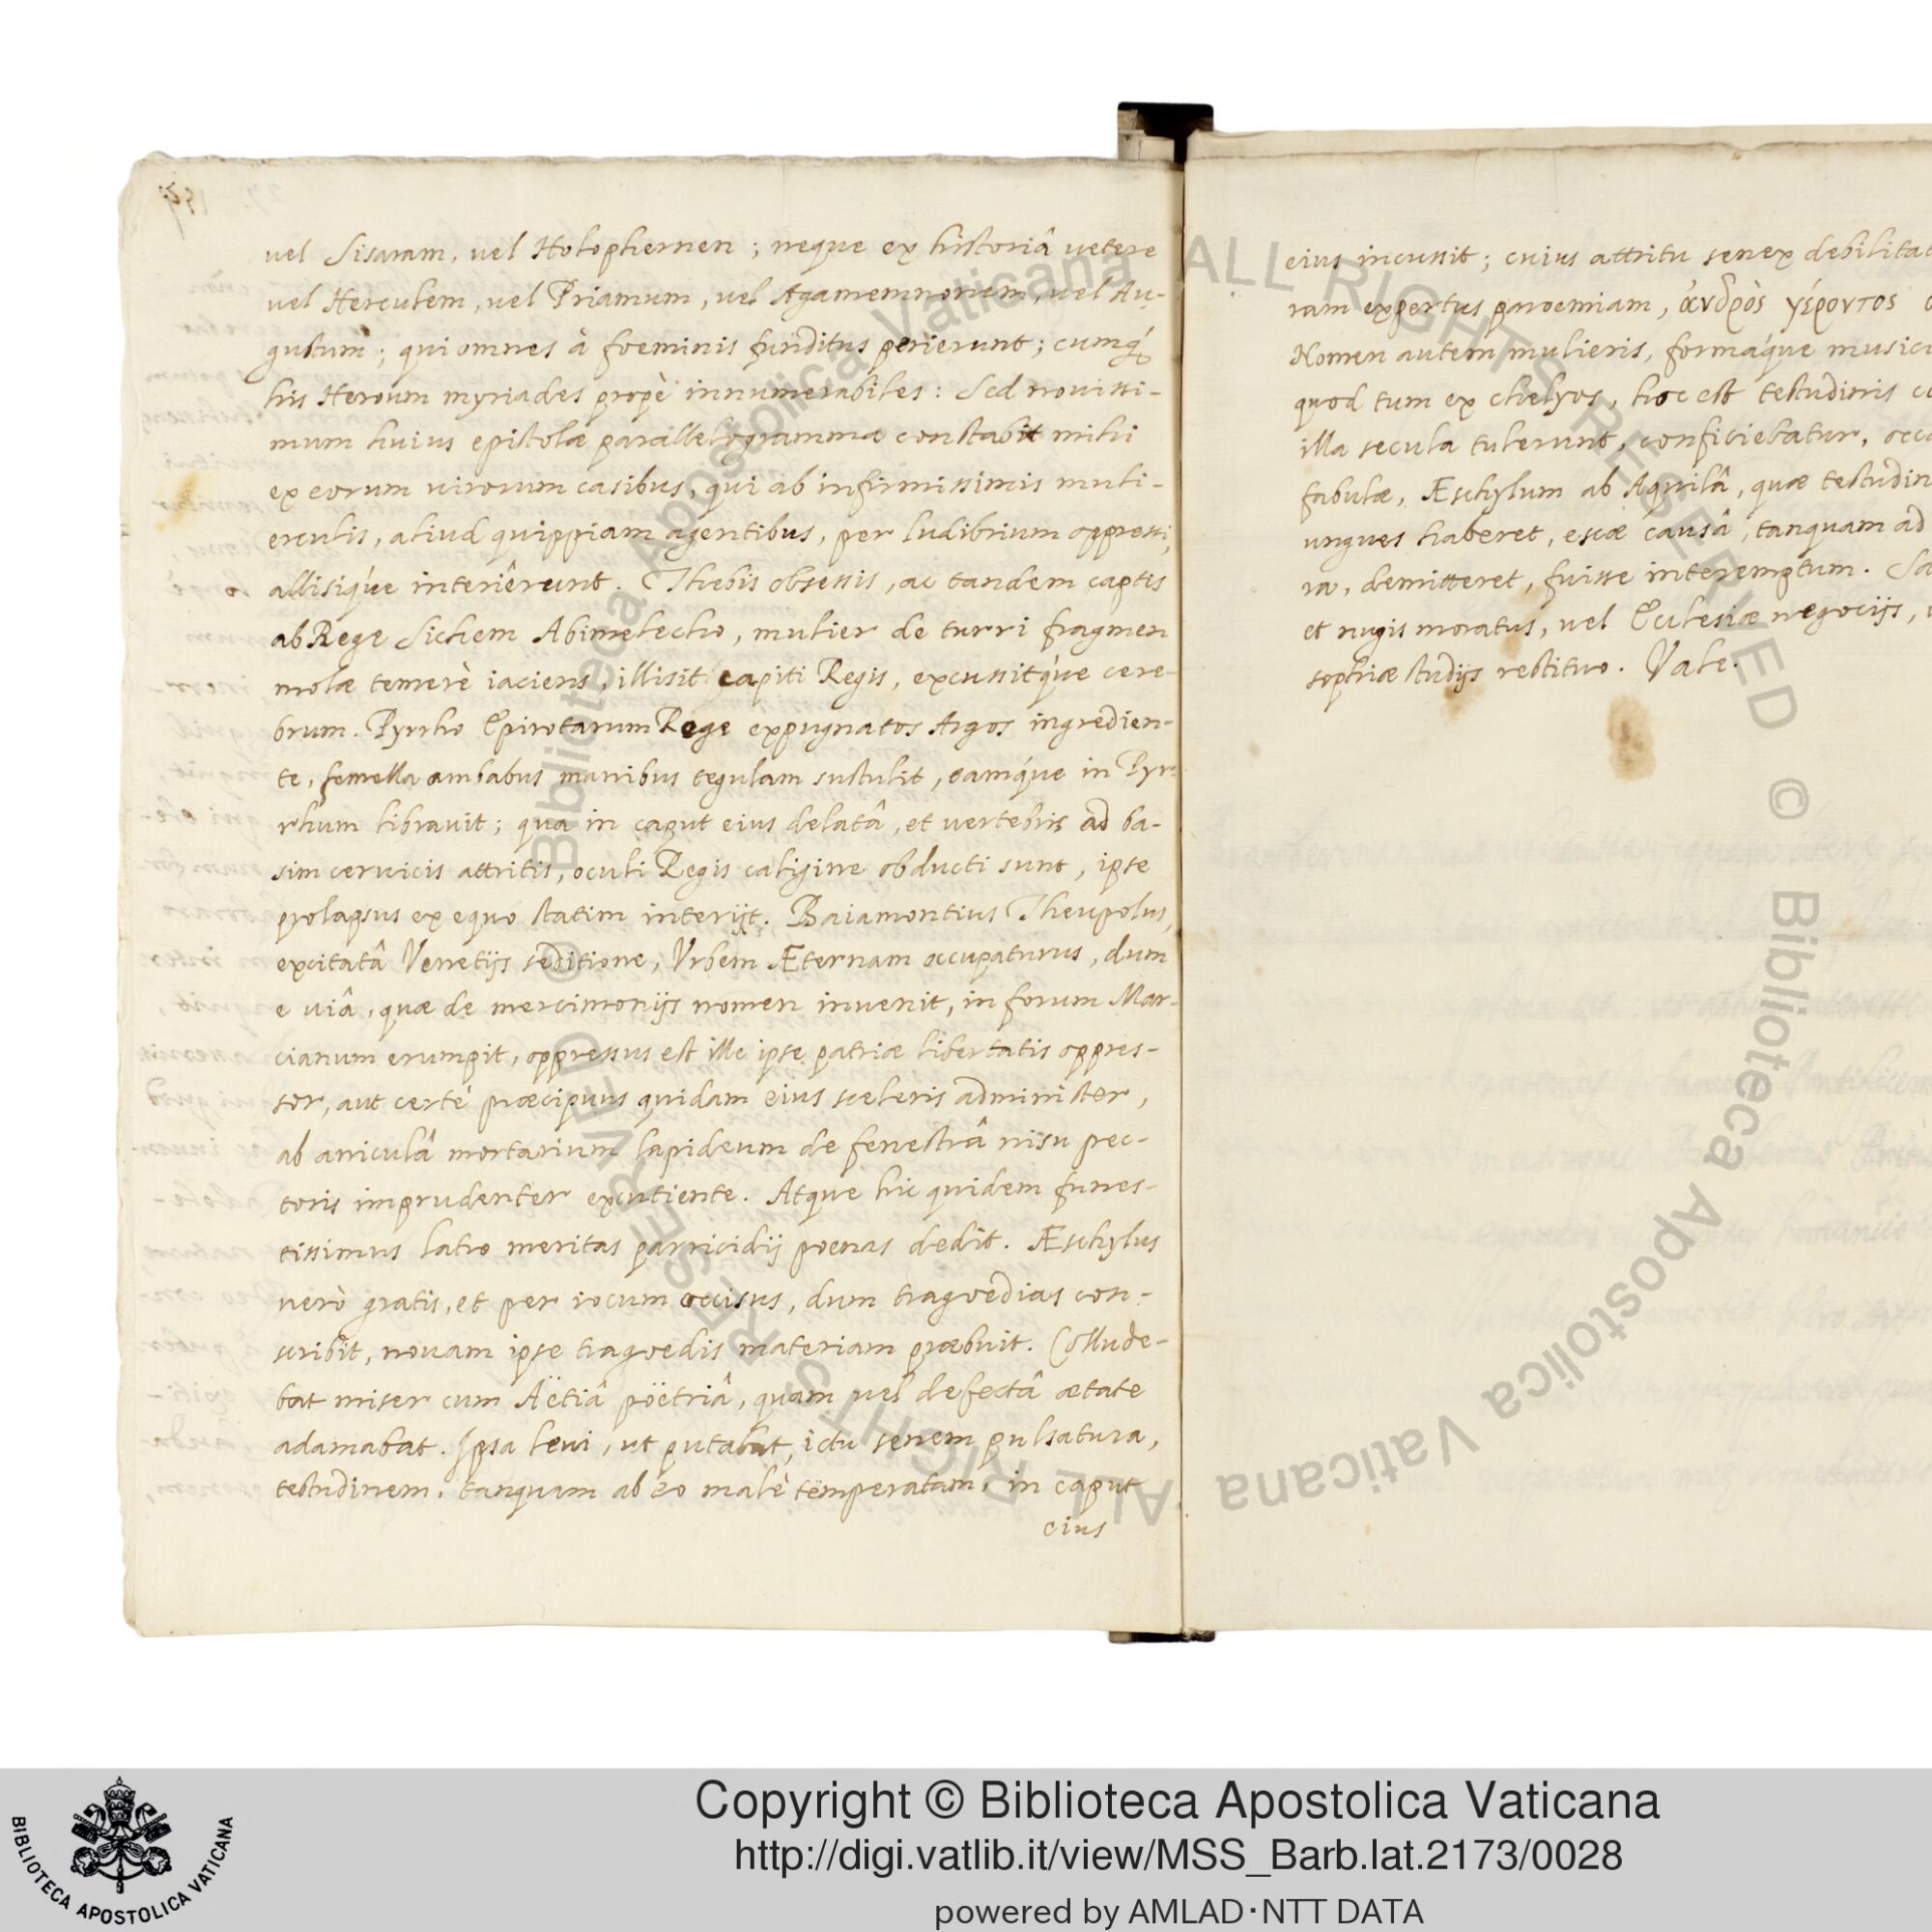 vel Sisaram, vel Holophernen; neque ex historiâ vetere
vel Herculem, vel Priamum, vel Agamemnonem, vel Au-
gustum; qui omnes à foeminis funditus perierunt; cumq́
his Heroum myriades propè innumerabiles: Sed novissi-
mum huius epistolæ parallelogramma constabit mihi
ex eorum virorum casibus, qui ab infirmissimis muli-
erculis, aliud quippiam agentibus, per ludibrium oppressi,
allisiq́ue interiêreunt. Thebis obsessis, ac tandem captis
ab Rege Sichem Abimelecho, mulier de turri fragmen
molæ temerè iaciens, illisit capiti Regis, excussitq́ue cere-
brum. Pyrrho Epirotarum Rege expugnatos Argos ingredien-
te, femella ambabus manibus tegulam sustulit, eamq́ue in Pyr-
rhum libravit; qua in caput eius delatâ, et vertebris ad ba-
sim cervicis attritis, oculi Regis caligine obducti sunt, ipse
prolapsus ex equo statim interijt. Baiamontius Theupolus,
excitatâ Venetijs seditione, Vrbem Æternam occupaturus, dum
e viâ, quæ de mercimonijs nomen invenit, in forum Mar-
cianum erumpit, oppressus est ille ipse patriæ libertatis oppres-
sor, aut certè præcipuus quidam eius sceleris administer,
ab aniculâ mortarium lapideum de fenestrâ nisu pec-
toris imprudenter excutiente. Atque hic quidem funes-
tissimus latro meritas parricidij poenas dedit. Æschylus
verò gratis, et per iocum occisus, dum tragoedias con-
scribit, novam ipse tragoedis materiam præbuit. Collude-
bat miser cum Aëtiâ poëtriâ, quam vel defectâ ætate
adamabat. Ipsa levi, ut putabat, ictu senem pulsatura,
testudinem, tanquam ab eo malè temperatam, in caput
eius
eius incussit; cuius attritu senex debilitat
ram expertus paroemiam, ἀνδρὸς γέροντος
Nomen autem mulieris, formaq́ue musici
quod tum ex chelyos, hoc est testudinis co
illa secula tulerunt, conficiebatur, occa
fabulæ, Æschylum ab Aquilâ, quæ testudin
ungues haberet, escæ causâ, tanquam ad
va, demitteret, fuisse interemptum. Sa
et nugis moratus, vel Ecclesiæ negocijs,
sophiæ studijs restituo. Vale.
© Biblioteca Apostolica Vaticana ALL RIGHTS RESERVED © Biblioteca Apostolica Vaticana ALL RIGHTS RESERVED
BIBLIOTECA APOSTOLICA VATICANA
Copyright © Biblioteca Apostolica Vaticana
http://digi.vatlib.it/view/MSS_Barb.lat.2173/0028
powered by AMLAD·NTT DATA